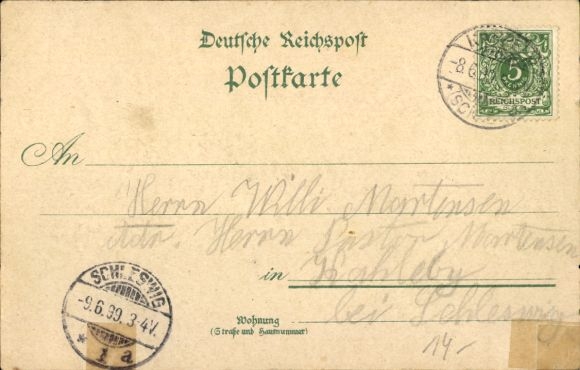 Deutsche Reichspost
Postkarte
8.6.
5
REICHSPOST
An
Herrn Willi Martensen
Adr. Herrn Pastor Martensen
in Kahleby
bei Schleswig
SCHLESWIG
-9.6.99. 3-4V.
* 1 a
Wohnung
(Straße und Hausnummer)
14-